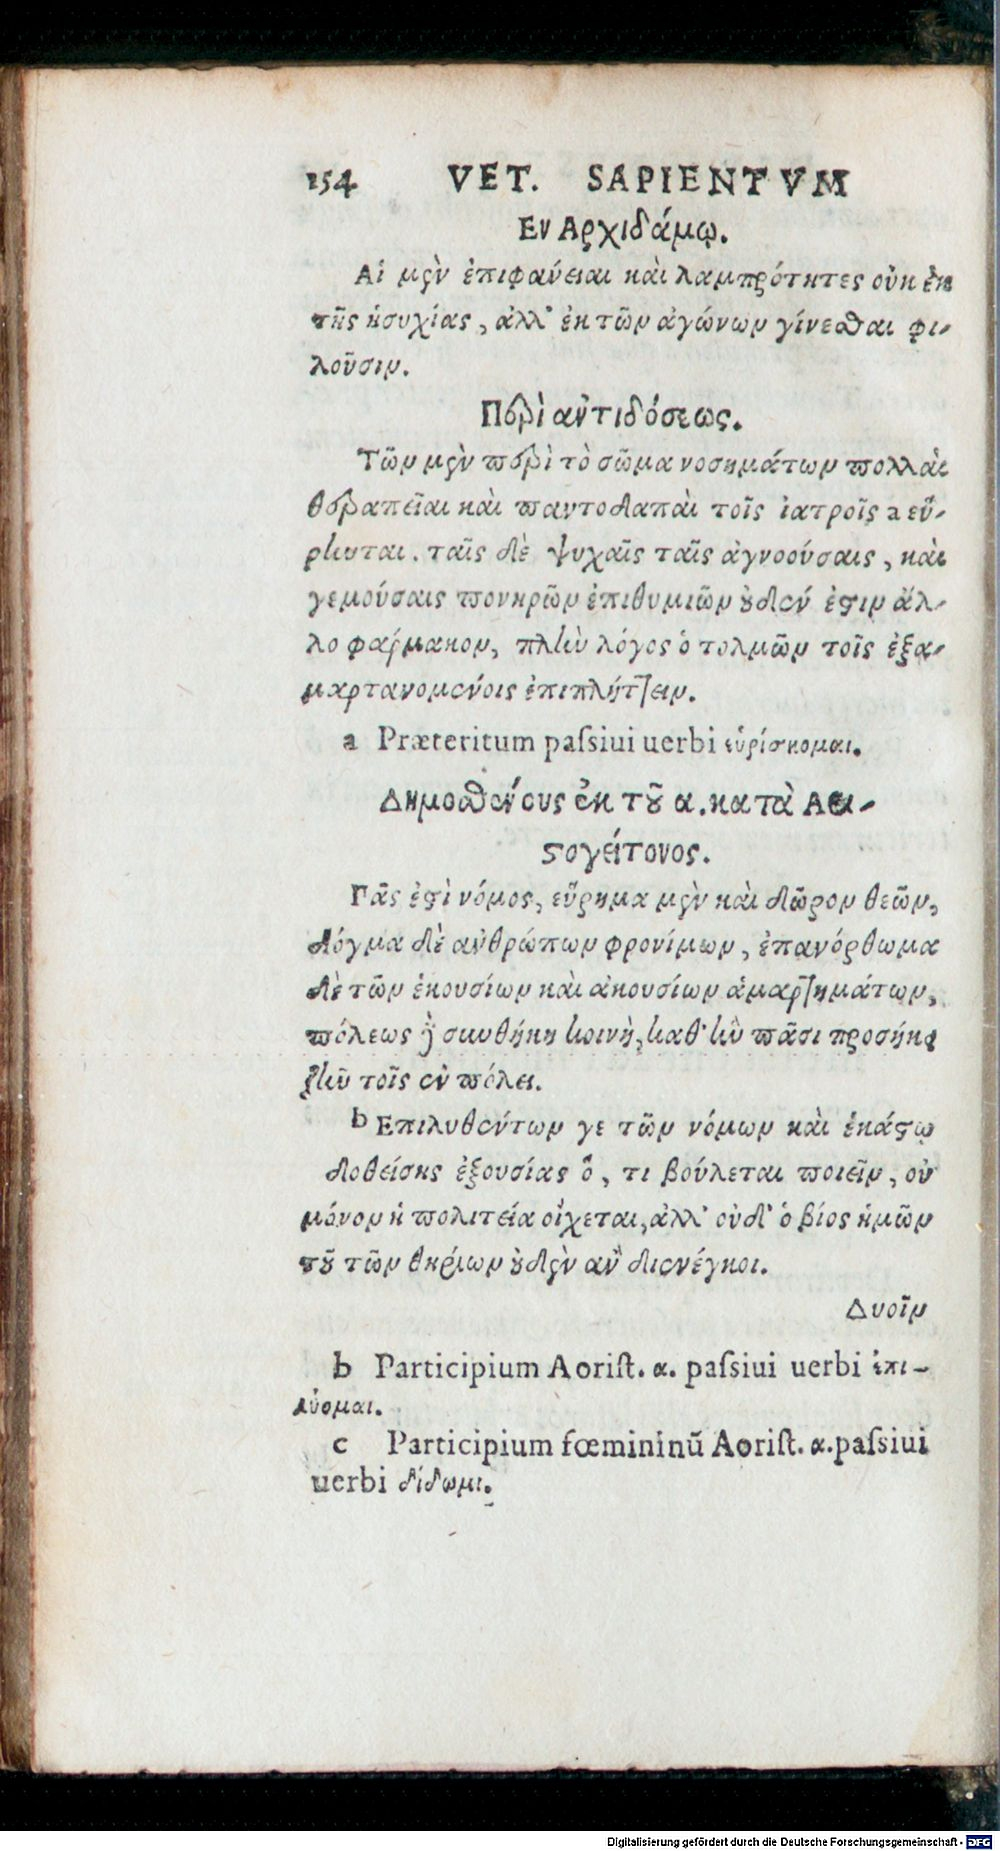 154 VET. SAPIENTVM
Εν Αρχιδάμῳ.
Αἱ μὲν ἐπιφάνειαι καὶ λαμπρότητες οὐκ ἐκ
τῆς ἡσυχίας, ἀλλ' ἐκ τῶν ἀγώνων γίνεσθαι φι-
λοῦσιν.
Περὶ ἀντιδόσεως.
Τῶν μὲν περὶ τὸ σῶμα νοσημάτων πολλαὶ
θεραπεῖαι καὶ παντοδαπαὶ τοῖς ἰατροῖς a εὕ-
ρηνται. ταῖς δὲ ψυχαῖς ταῖς ἀγνοούσαις, καὶ
γεμούσαις πονηρῶν ἐπιθυμιῶν οὐδέν ἐστιν ἄλ-
λο φάρμακον, πλὴν λόγος ὁ τολμῶν τοῖς ἐξα-
μαρτανομένοις ἐπιπλήττειν.
a Præteritum paſsiui uerbi εὑρίσκομαι.
Δημοσθένους ἐκ τοῦ α. κατὰ Αρι-
στογείτονος.
Πᾶς ἐστὶ νόμος, εὕρημα μὲν καὶ δῶρον θεῶν,
δόγμα δὲ ἀνθρώπων φρονίμων, ἐπανόρθωμα
δὲ τῶν ἑκουσίων καὶ ἀκουσίων ἁμαρτημάτων,
πόλεως δὲ συνθήκη κοινὴ, καθ' ἣν πᾶσι προσήκει
ζῆν τοῖς ἐν πόλει.
b Επιλυθέντων γε τῶν νόμων καὶ ἑκάστῳ
δοθείσης ἐξουσίας ὅ, τι βούλεται ποιεῖν, οὐ
μόνον ἡ πολιτεία οἴχεται, ἀλλ' οὐδ' ὁ βίος ἡμῶν
τοῦ τῶν θηρίων οὐδὲν ἂν διενέγκοι.
Δυοῖν
b Participium Aoriſt. α. paſsiui uerbi ἐπι-
λύομαι.
c Participium fœmininũ Aoriſt. α. paſsiui
uerbi δίδωμι.
Digitalisierung gefördert durch die Deutsche Forschungsgemeinschaft - DFG